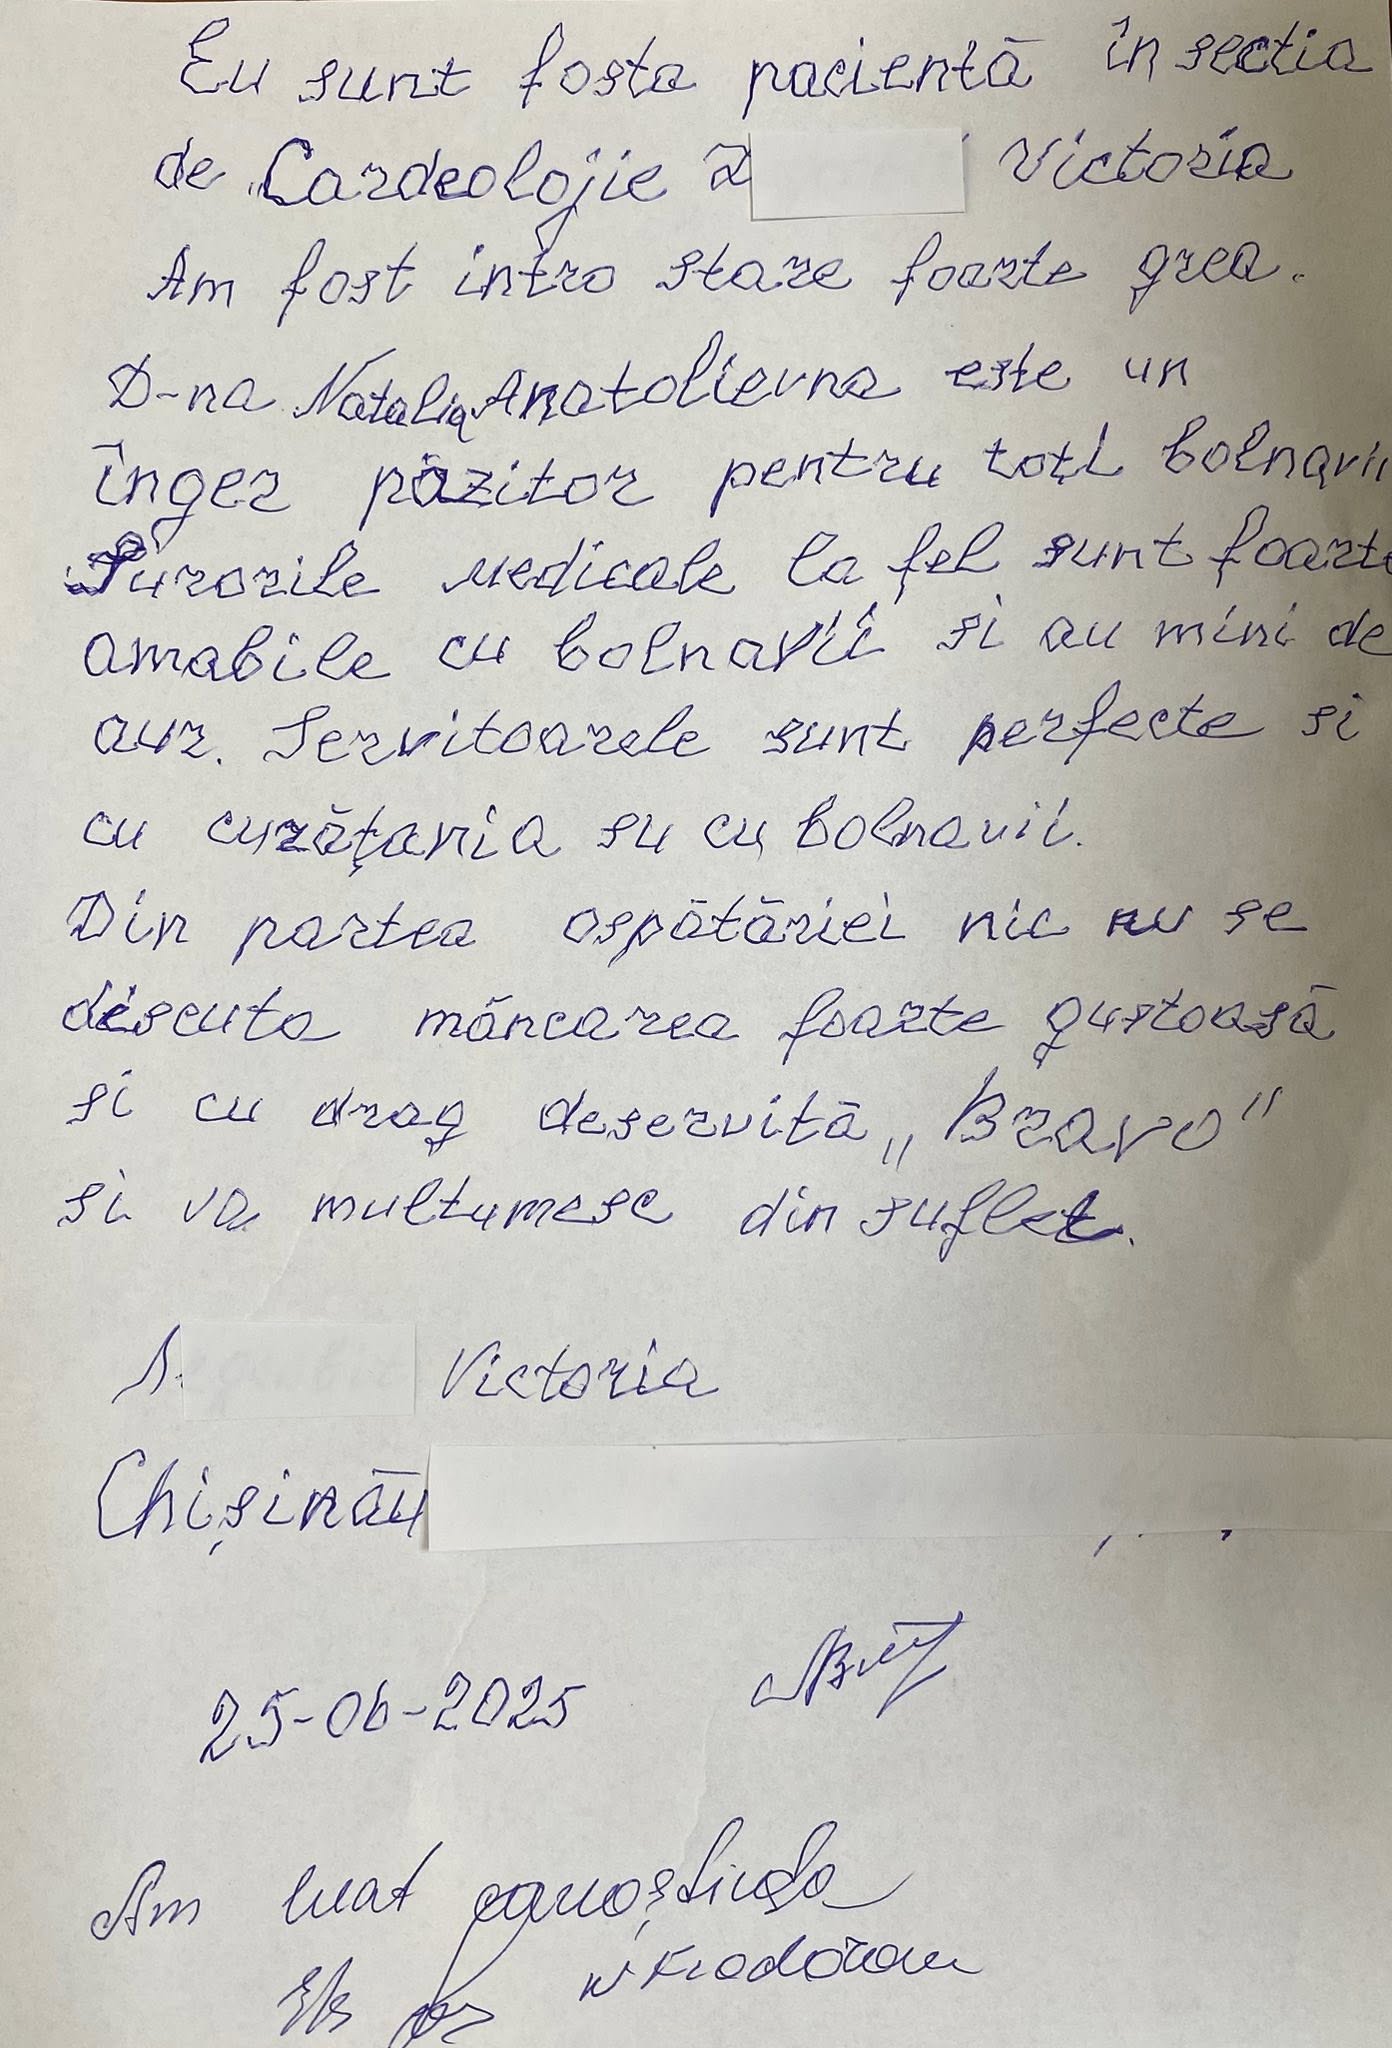 Eu sunt fosta pacientă în sectia
de „Cardeolojie Victoria
Am fost intro stare foarte grea.
D-na Natalia Anatolievna este un
înger păzitor pentru toți bolnavii
Surorile medicale la fel sunt foarte
amabile cu bolnavii si au mini de
aur. Servitoarele sunt perfecte si
cu curăţania su cu bolnavii.
Din partea ospătăriei nic nu se
discuta măncarea foarte gustoasă
si cu drag deservită „Bravo"
si va multumesc din suflet.
Victoria
Chişinău
25-06-2025
Am luat